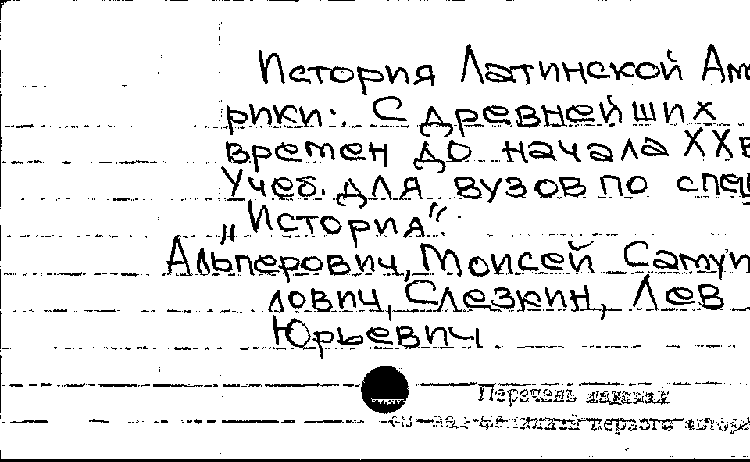 История Латинской Аме
рики: С древнейших
времен до начала XX в
Учеб. для вузов по спец
„История“.
Альперович, Моисей Самуи
лович, Слезкин, Лев
Юрьевич
Перечень изданий
см. на первого автора